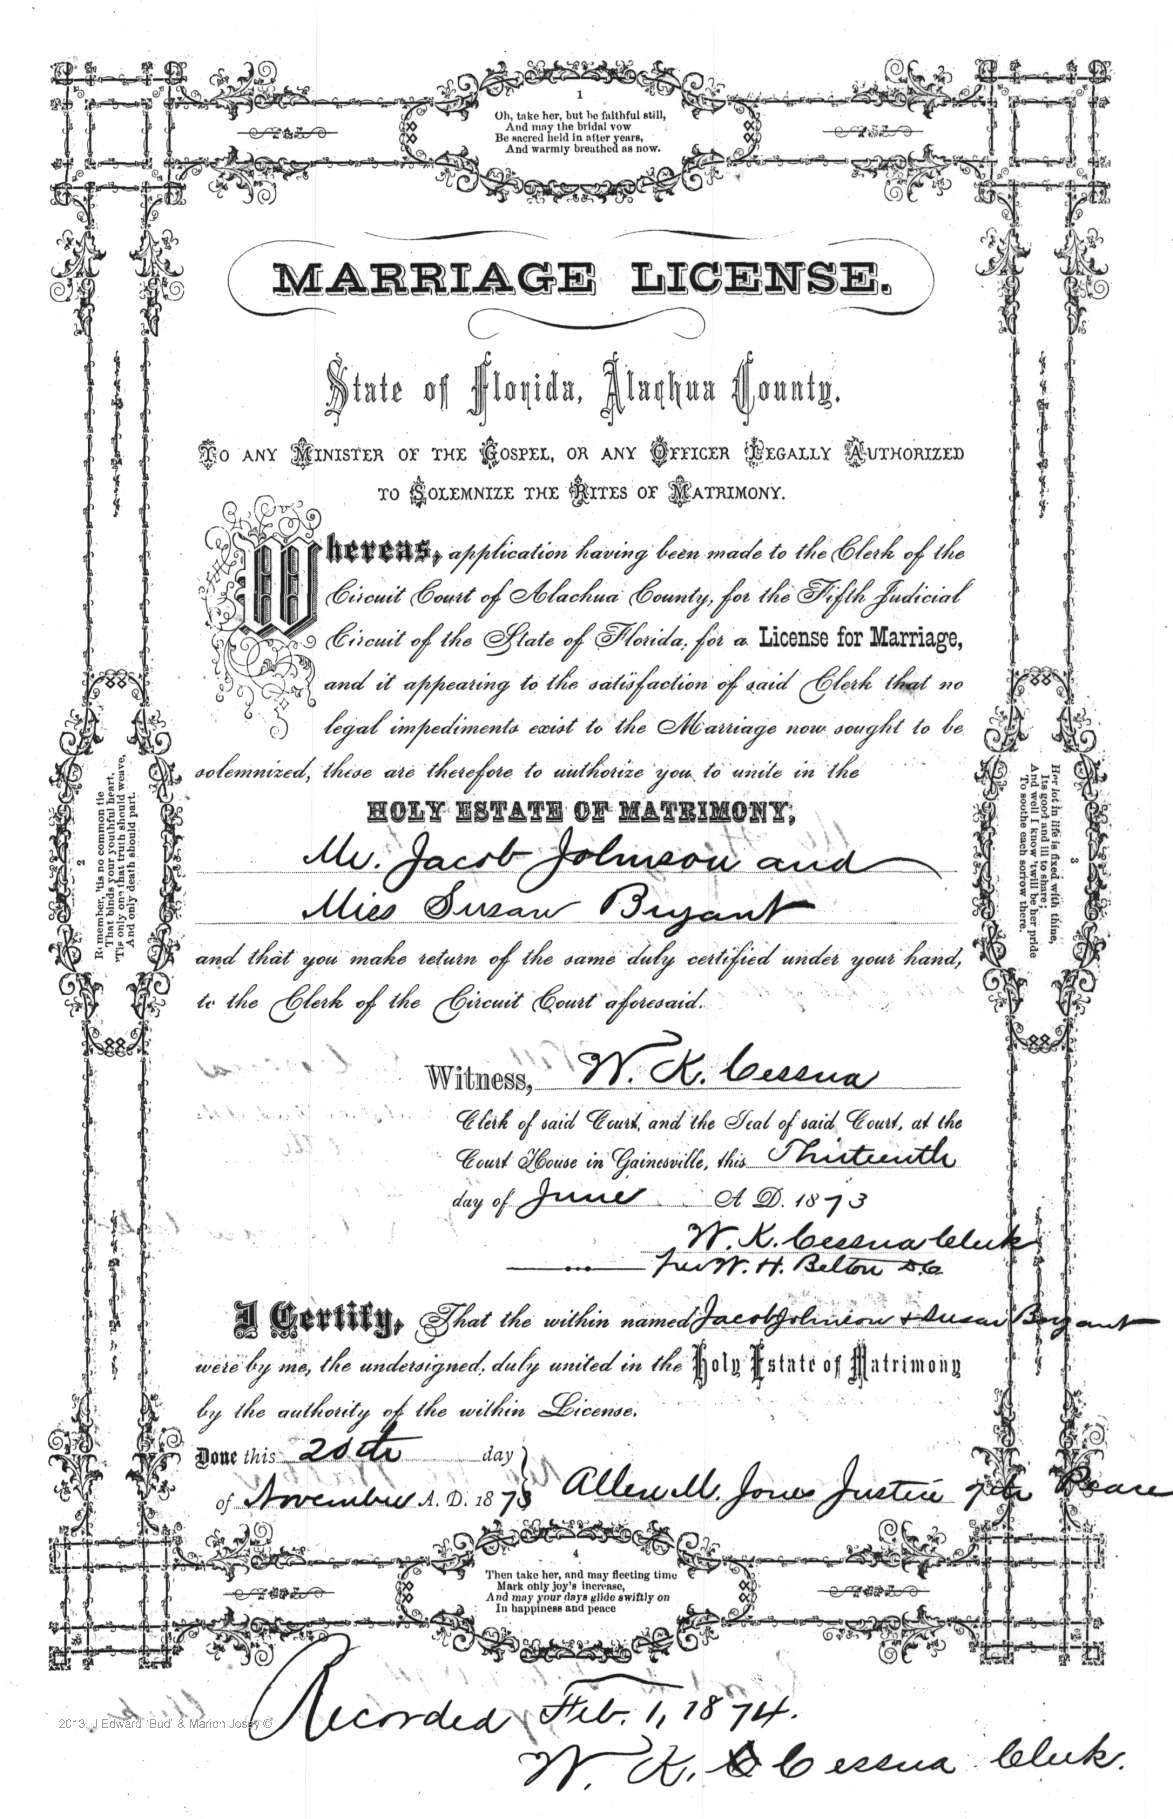 1
Oh, take her, but be faithful still,
And may the bridal vow
Be sacred held in after years,
And warmly breathed as now.
MARRIAGE LICENSE.
State of Florida, Alachua County.
TO ANY MINISTER OF THE GOSPEL, OR ANY OFFICER LEGALLY AUTHORIZED
TO SOLEMNIZE THE RITES OF MATRIMONY.
Whereas, application having been made to the Clerk of the
Circuit Court of Alachua County, for the Fifth Judicial
Circuit of the State of Florida, for a License for Marriage,
and it appearing to the satisfaction of said Clerk that no
legal impediments exist to the Marriage now sought to be
solemnized, these are therefore to authorize you to unite in the
HOLY ESTATE OF MATRIMONY;
Mr. Jacob Johnson and
Miss Susan Bryant
and that you make return of the same duly certified under your hand,
to the Clerk of the Circuit Court aforesaid.
Witness, W. K. Cessna
Clerk of said Court, and the Seal of said Court, at the
Court House in Gainesville, this Thirteenth
day of June A. D. 1873
W. K. Cessna Clerk
Per W. H. Belton D.C.
I Certify, That the within named Jacob Johnson & Susan Bryant
were by me, the undersigned, duly united in the Holy Estate of Matrimony
by the authority of the within License.
Done this 20th day
of November A. D. 1873
Allen M. Jones Justice of the Peace
2
Remember, 'tis no common tie
That binds your youthful heart,
'Tis only one that truth should weave,
And only death should part.
3
Her lot in life is fixed with thine,
Its good and ill to share;
And well I know 'twill be her pride
To soothe each sorrow there.
4
Then take her, and may fleeting time
Mark only joy's increase,
And may your days glide swiftly on
In happiness and peace
Recorded Feb. 1, 1874.
W. K. Cessna Clerk.
2013, J Edward 'Bud' & Marion Josey ©